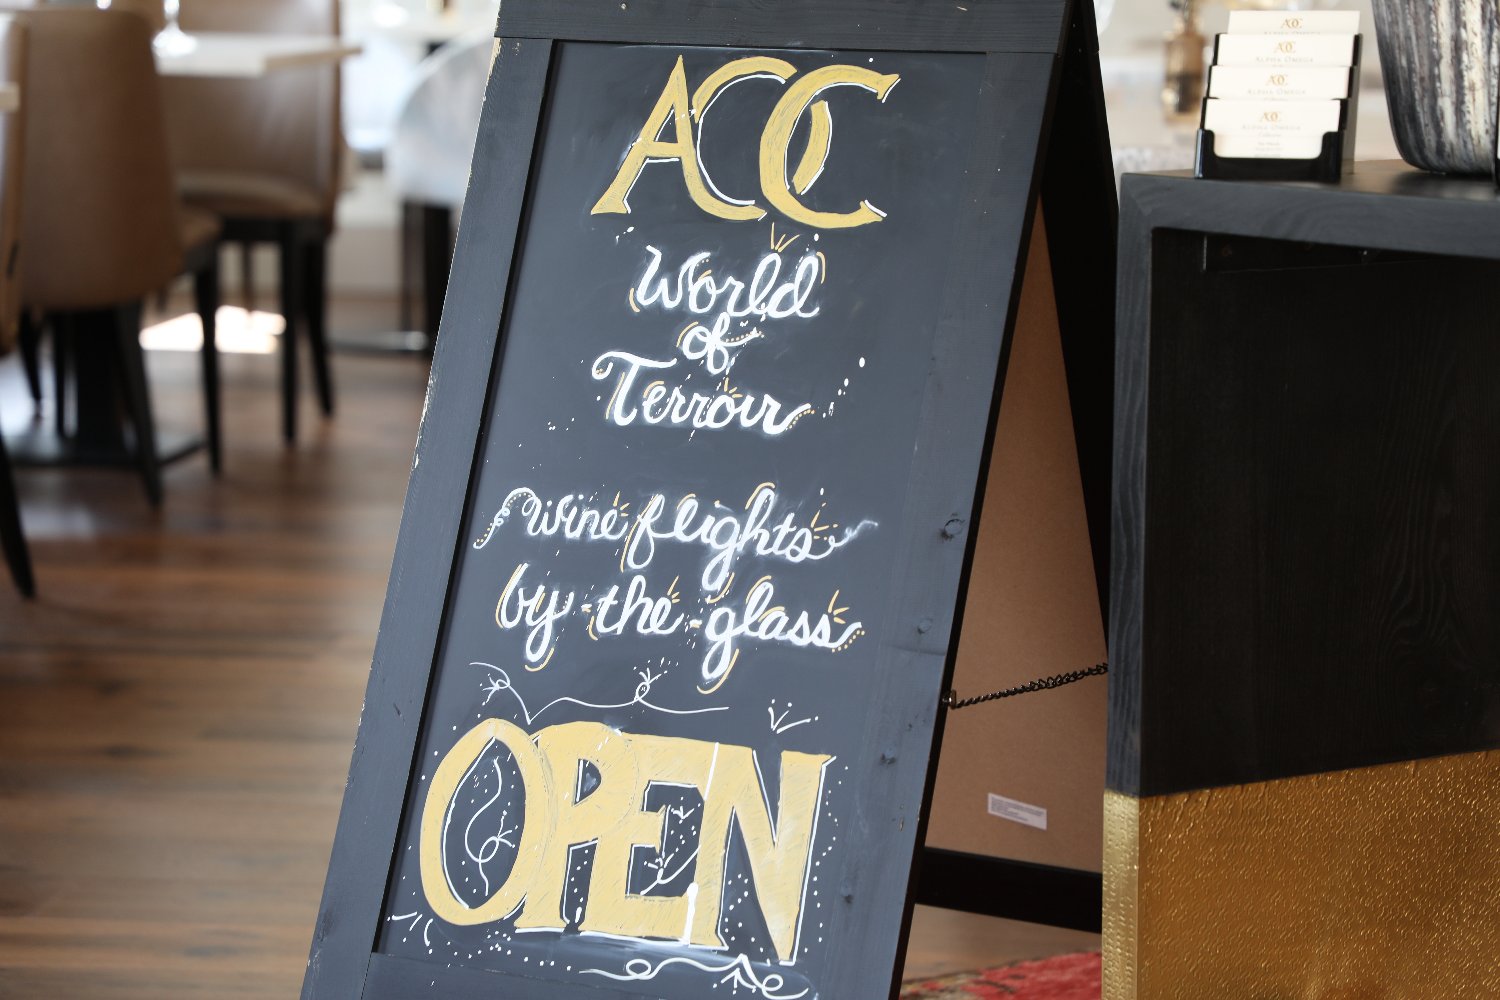 AOC
World
of
Terroir
wine flights
by the glass
OPEN
AOC
AOC
ALPHA OMEGA
AOC
ALPHA OMEGA
AOC
ALPHA OMEGA